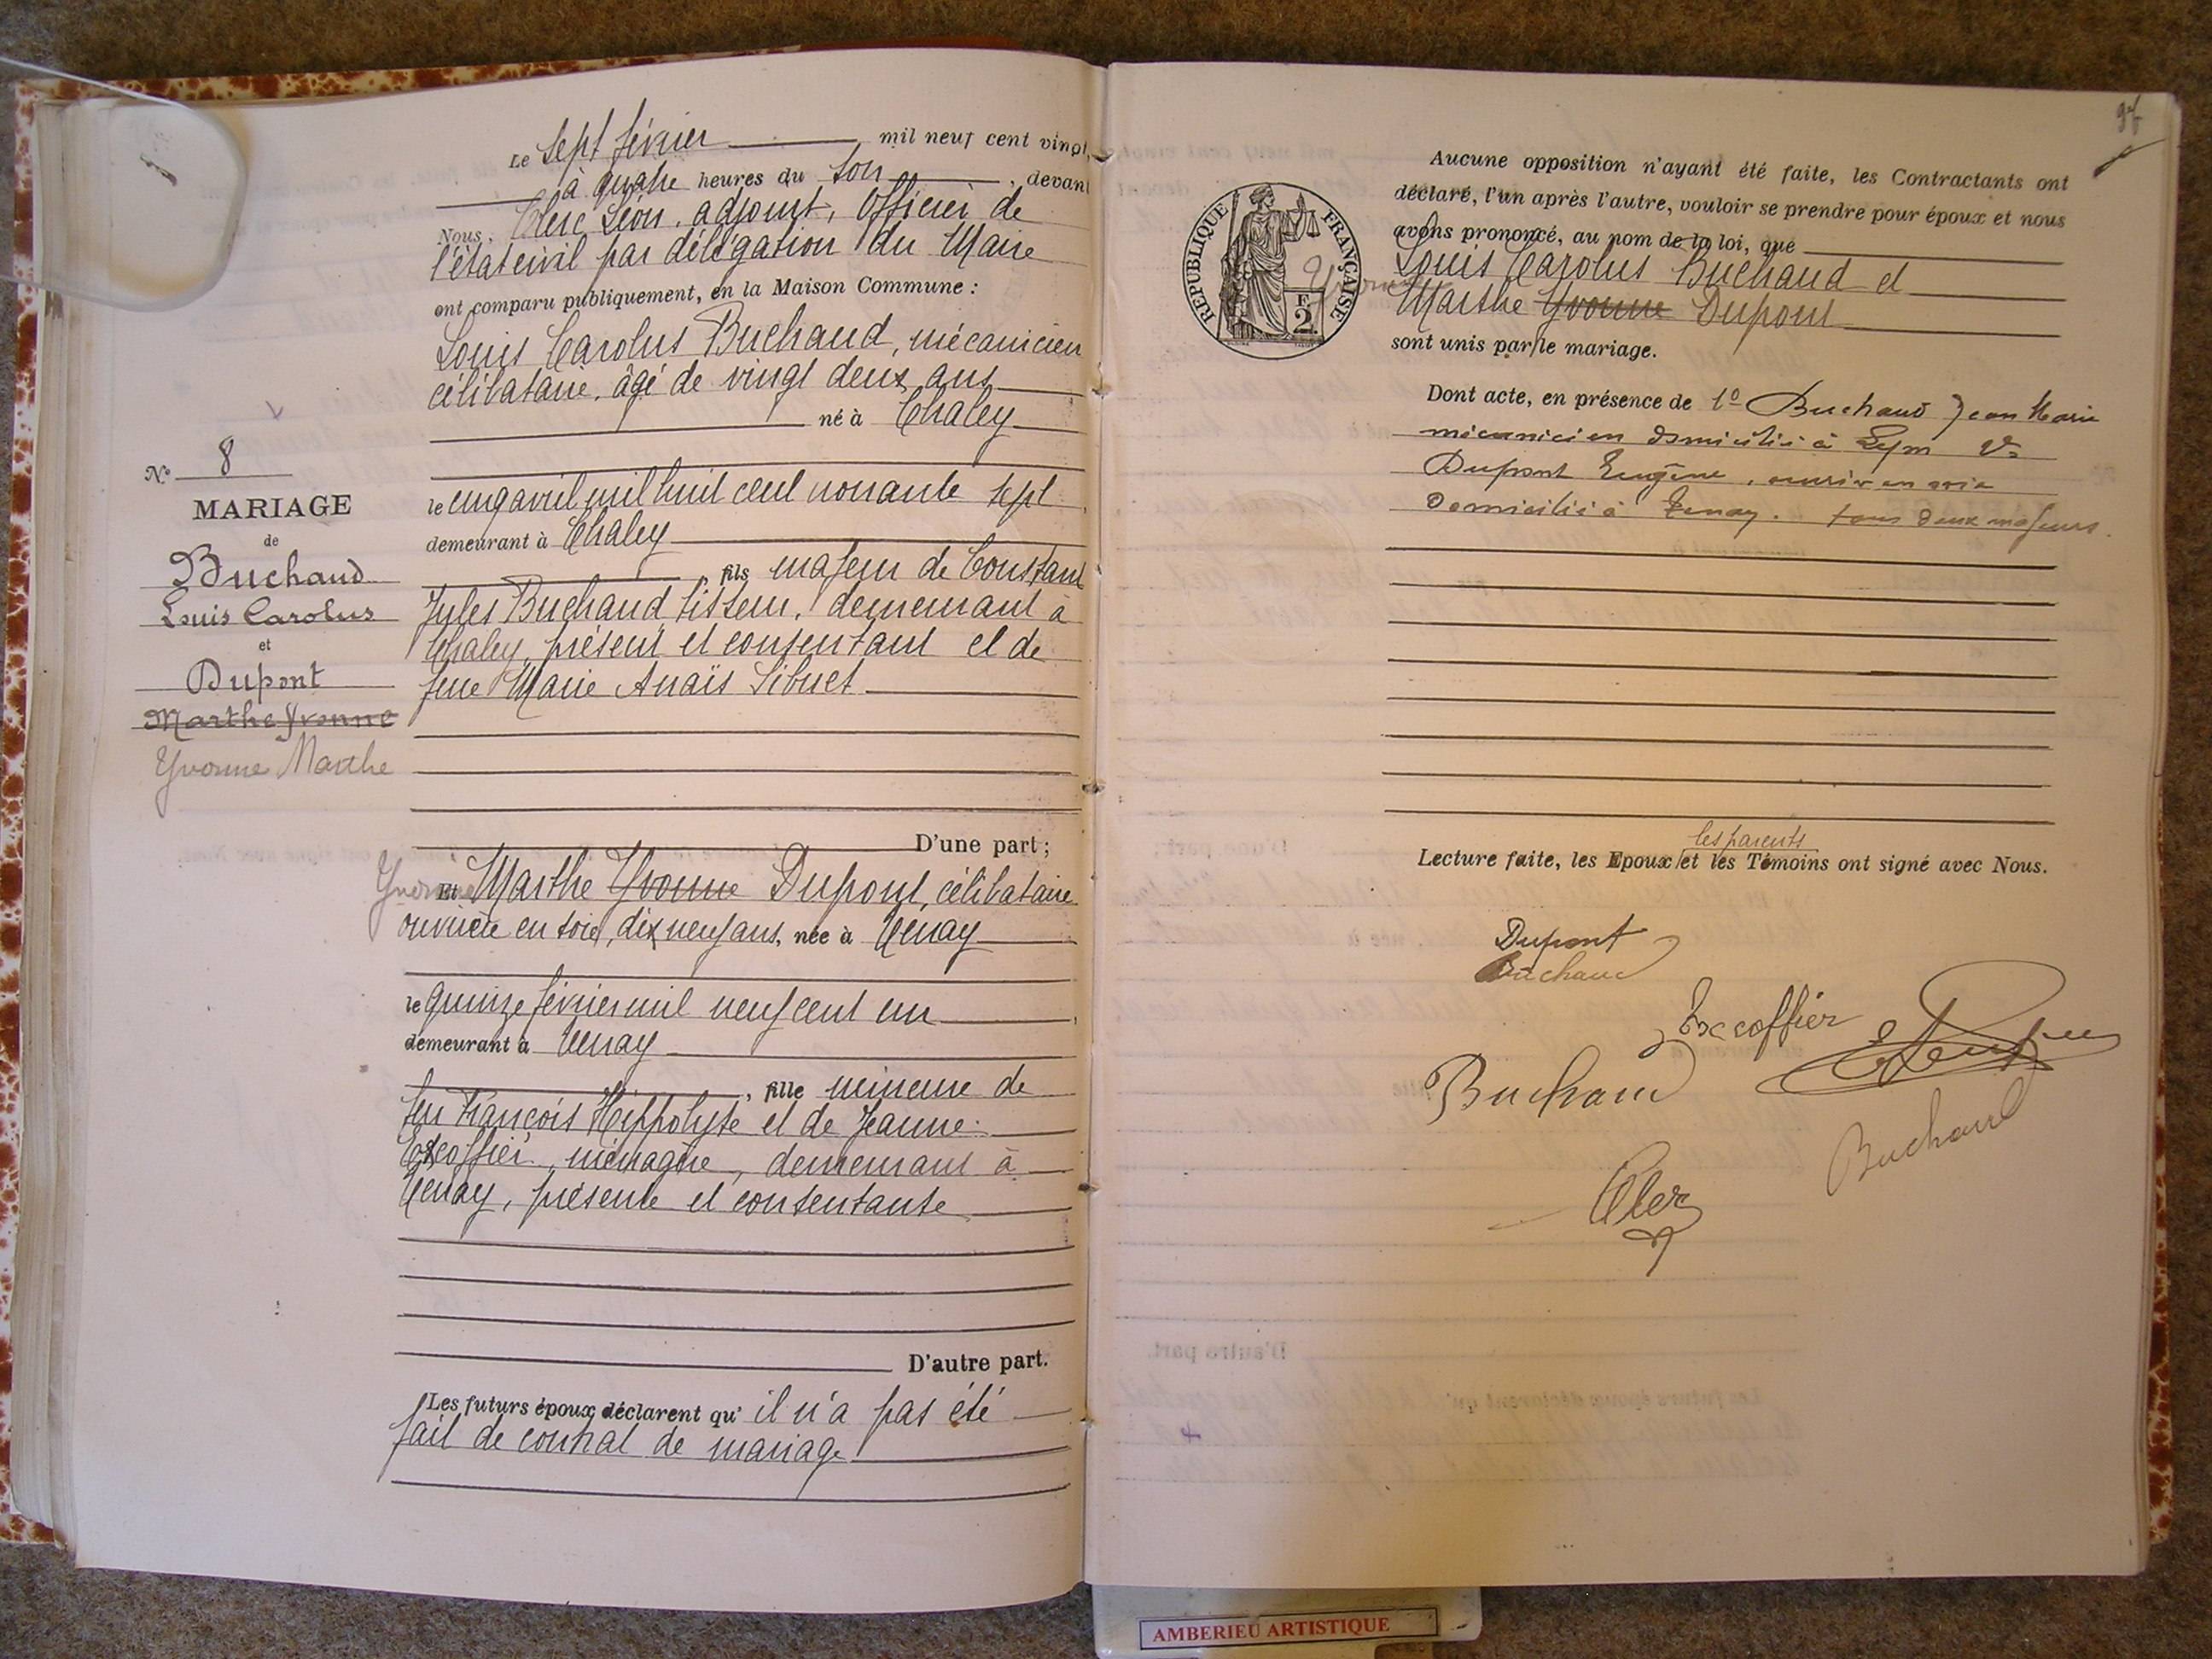 Le sept février mil neuf cent vingt,
à quatre heures du soir, devant
Nous, Clerc Léon, adjoint, Officier de
l'état civil par délégation du Maire
ont comparu publiquement, en la Maison Commune :
Louis Carolus Buchaud, mécanicien
célibataire, âgé de vingt deux ans
né à Chaley
le cinq avril mil huit cent nonante sept,
demeurant à Chaley
, fils majeur de Constant
Jules Buchaud, tisseur, demeurant à
Chaley, présent et consentant et de
feue Marie Anaïs Sibuet
D'une part ;
Yvonne
Et Marthe Yvonne Dupont, célibataire
ouvrière en soie, dix neuf ans, née à Tenay
le quinze février mil neuf cent un,
demeurant à Tenay
, fille mineure de
feu François Hippolyte et de Jeanne
Excoffier, ménagère, demeurant à
Tenay, présente et consentante
D'autre part.
Les futurs époux déclarent qu' il n'a pas été
fait de contrat de mariage
No 8
MARIAGE
de
Buchaud
Louis Carolus
et
Dupont
Marthe Yvonne
Yvonne Marthe
97
Aucune opposition n'ayant été faite, les Contractants ont
déclaré, l'un après l'autre, vouloir se prendre pour époux et nous
avons prononcé, au nom de la loi, que
Louis Carolus Buchaud et
Yvonne
Marthe Yvonne Dupont
sont unis par le mariage.
REPUBLIQUE FRANÇAISE
2 F.
Dont acte, en présence de 1o Buchaud Jean Marie
mécanicien domicilié à Lyon 2o
Dupont Eugène, ouvrier en soie
domicilié à Tenay. tous deux majeurs.
les parents
Lecture faite, les Epoux et les Témoins ont signé avec Nous.
Dupont
Buchaud
Excoffier
Buchaud
Buchaud
Clerc
AMBERIEU ARTISTIQUE